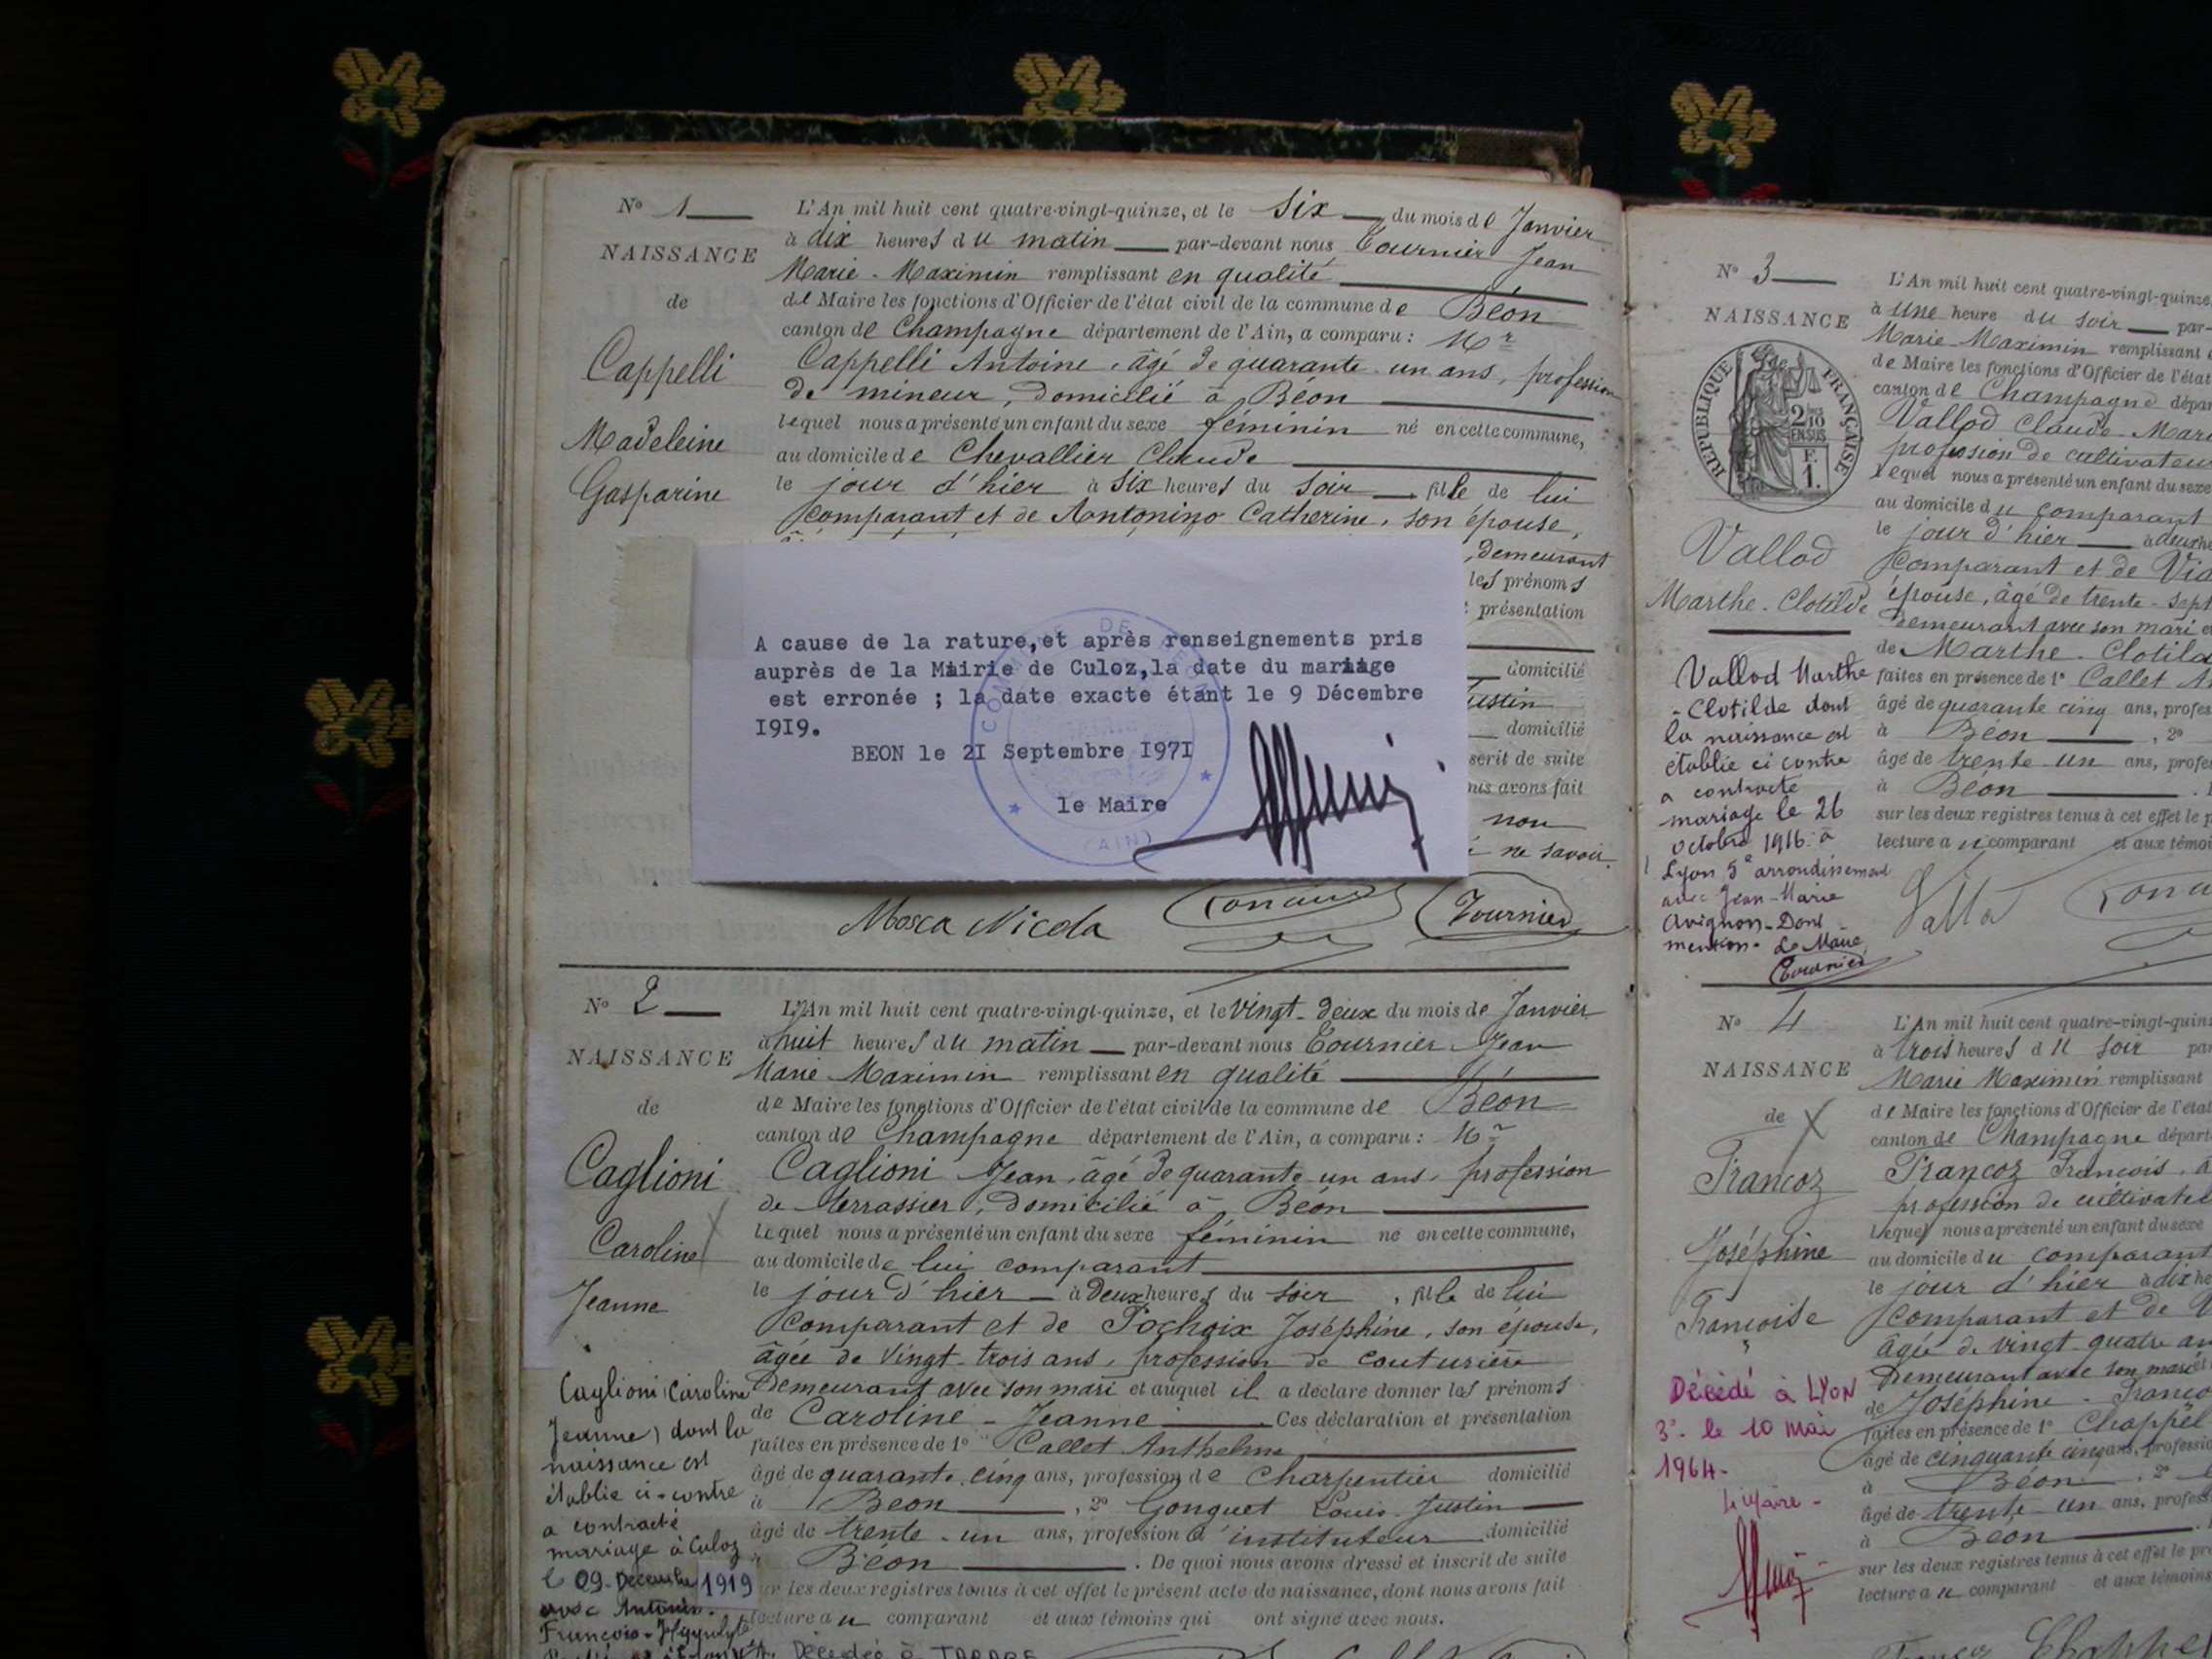 Nº 1
L'An mil huit cent quatre-vingt-quinze, et le six du mois de Janvier
à dix heures du matin par-devant nous Tournier Jean
NAISSANCE
Marie-Maximin remplissant en qualité
de
de Maire les fonctions d'Officier de l'état civil de la commune de Béon
canton de Champagne département de l'Ain, a comparu: Mr
Cappelli
Cappelli Antoine, âgé de quarante-un ans, profession
de mineur, domicilié à Béon
Madeleine
lequel nous a présenté un enfant du sexe féminin né en cette commune,
au domicile de Chevallier Claude
Gasparine
le jour d'hier à six heures du soir fille de lui
comparant et de Antonino Catherine, son épouse,
, demeurant
les prénoms
présentation
A cause de la rature,et après renseignements pris
auprès de la Mairie de Culoz,la date du mariage
est erronée ; la date exacte étant le 9 Décembre
I9I9.
BEON le 2I Septembre I97I
le Maire
COMMUNE DE BEON
(AIN)
domicilié
ustin
domicilié
scrit de suite
nous avons fait
non
ne savoir.
Mosca Nicola
Tournier
Nº 2
L'An mil huit cent quatre-vingt-quinze, et le vingt-deux du mois de Janvier
à huit heures du matin par-devant nous Tournier Jean
NAISSANCE
Marie Maximin remplissant en qualité
de
de Maire les fonctions d'Officier de l'état civil de la commune de Béon
canton de Champagne département de l'Ain, a comparu: Mr
Caglioni
Caglioni Jean, âgé de quarante-un ans, profession
de terrassier, domicilié à Béon
Caroline
lequel nous a présenté un enfant du sexe féminin né en cette commune,
au domicile de lui comparant
Jeanne
le jour d'hier à deux heures du soir, fille de lui
comparant et de Pochoix Joséphine, son épouse,
âgée de vingt-trois ans, profession de couturière
demeurant avec son mari et auquel il a déclaré donner les prénoms
de Caroline-Jeanne Ces déclaration et présentation
faites en présence de 1º Callet Anthelme
âgé de quarante cinq ans, profession de Charpentier domicilié
à Béon, 2º Gonguet Louis Justin
âgé de trente-un ans, profession d'instituteur domicilié
à Béon. De quoi nous avons dressé et inscrit de suite
sur les deux registres tenus à cet effet le présent acte de naissance, dont nous avons fait
lecture au comparant et aux témoins qui ont signé avec nous.
Caglioni (Caroline
Jeanne) dont la
naissance est
établie ci-contre
a contracté
mariage à Culoz
le 09 Décembre 1919
avec Antonin-
François-Hyppolyte
Décédée à TARARE
Nº 3
L'An mil huit cent quatre-vingt-quinze,
NAISSANCE
à une heure du soir par-
Marie-Maximin remplissant
de Maire les fonctions d'Officier de l'état
canton de Champagne dépar
RÉPUBLIQUE FRANÇAISE
2/10 EN SUS
F. 1.
Vallod Claude-Mari
profession de cultivateur
lequel nous a présenté un enfant du sexe
au domicile du comparant
Vallod
le jour d'hier à deux he
comparant et de Via
Marthe-Clotilde
épouse, âgé de trente-sept
demeurant avec son mari e
de Marthe-Clotild
faites en présence de 1º Callet A
âgé de quarante cinq ans, profes
à Béon, 2º
âgé de trente-un ans, profes
à Béon
sur les deux registres tenus à cet effet le p
lecture au comparant et aux témoi
Vallod Marthe
-Clotilde dont
la naissance est
établie ci contre
a contracté
mariage le 26
octobre 1916 à
Lyon 5e arrondissement
avec Jean-Marie
Avignon-Dont
mention-Le Maire,
Tournier
Nº 4
L'An mil huit cent quatre-vingt-quin
à trois heures du soir par
NAISSANCE
Marie Maximin remplissant
de
de Maire les fonctions d'Officier de l'état
canton de Champagne départ
Françoz
Françoz François, â
profession de cultivate
lequel nous a présenté un enfant du sexe
Joséphine
au domicile du comparant
le jour d'hier à dix he
Françoise
comparant et de
âgée de vingt-quatre an
demeurant avec son mari et
de Joséphine-Franço
faites en présence de 1º Chappel
âgé de cinquante cinq ans, professio
à Béon, 2º
âgé de trente-un ans, profess
à Béon
sur les deux registres tenus à cet effet le pré
lecture au comparant et aux témoins
Décédé à LYON
3e le 10 Mai
1964-
Le Maire-